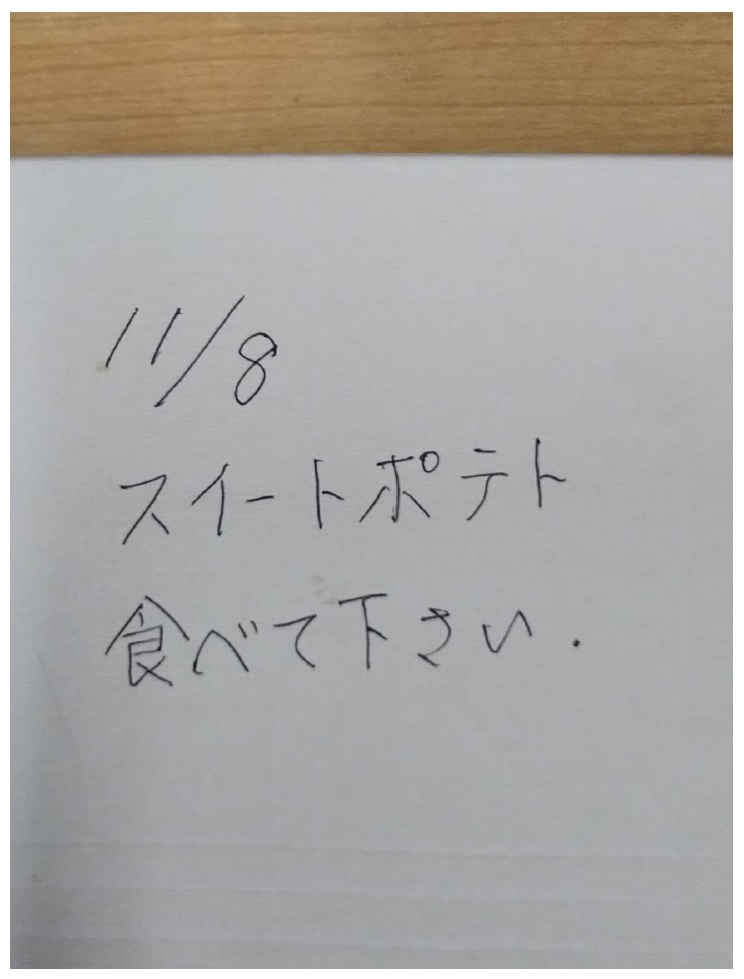 11/8
スイートポテト
食べて下さい.